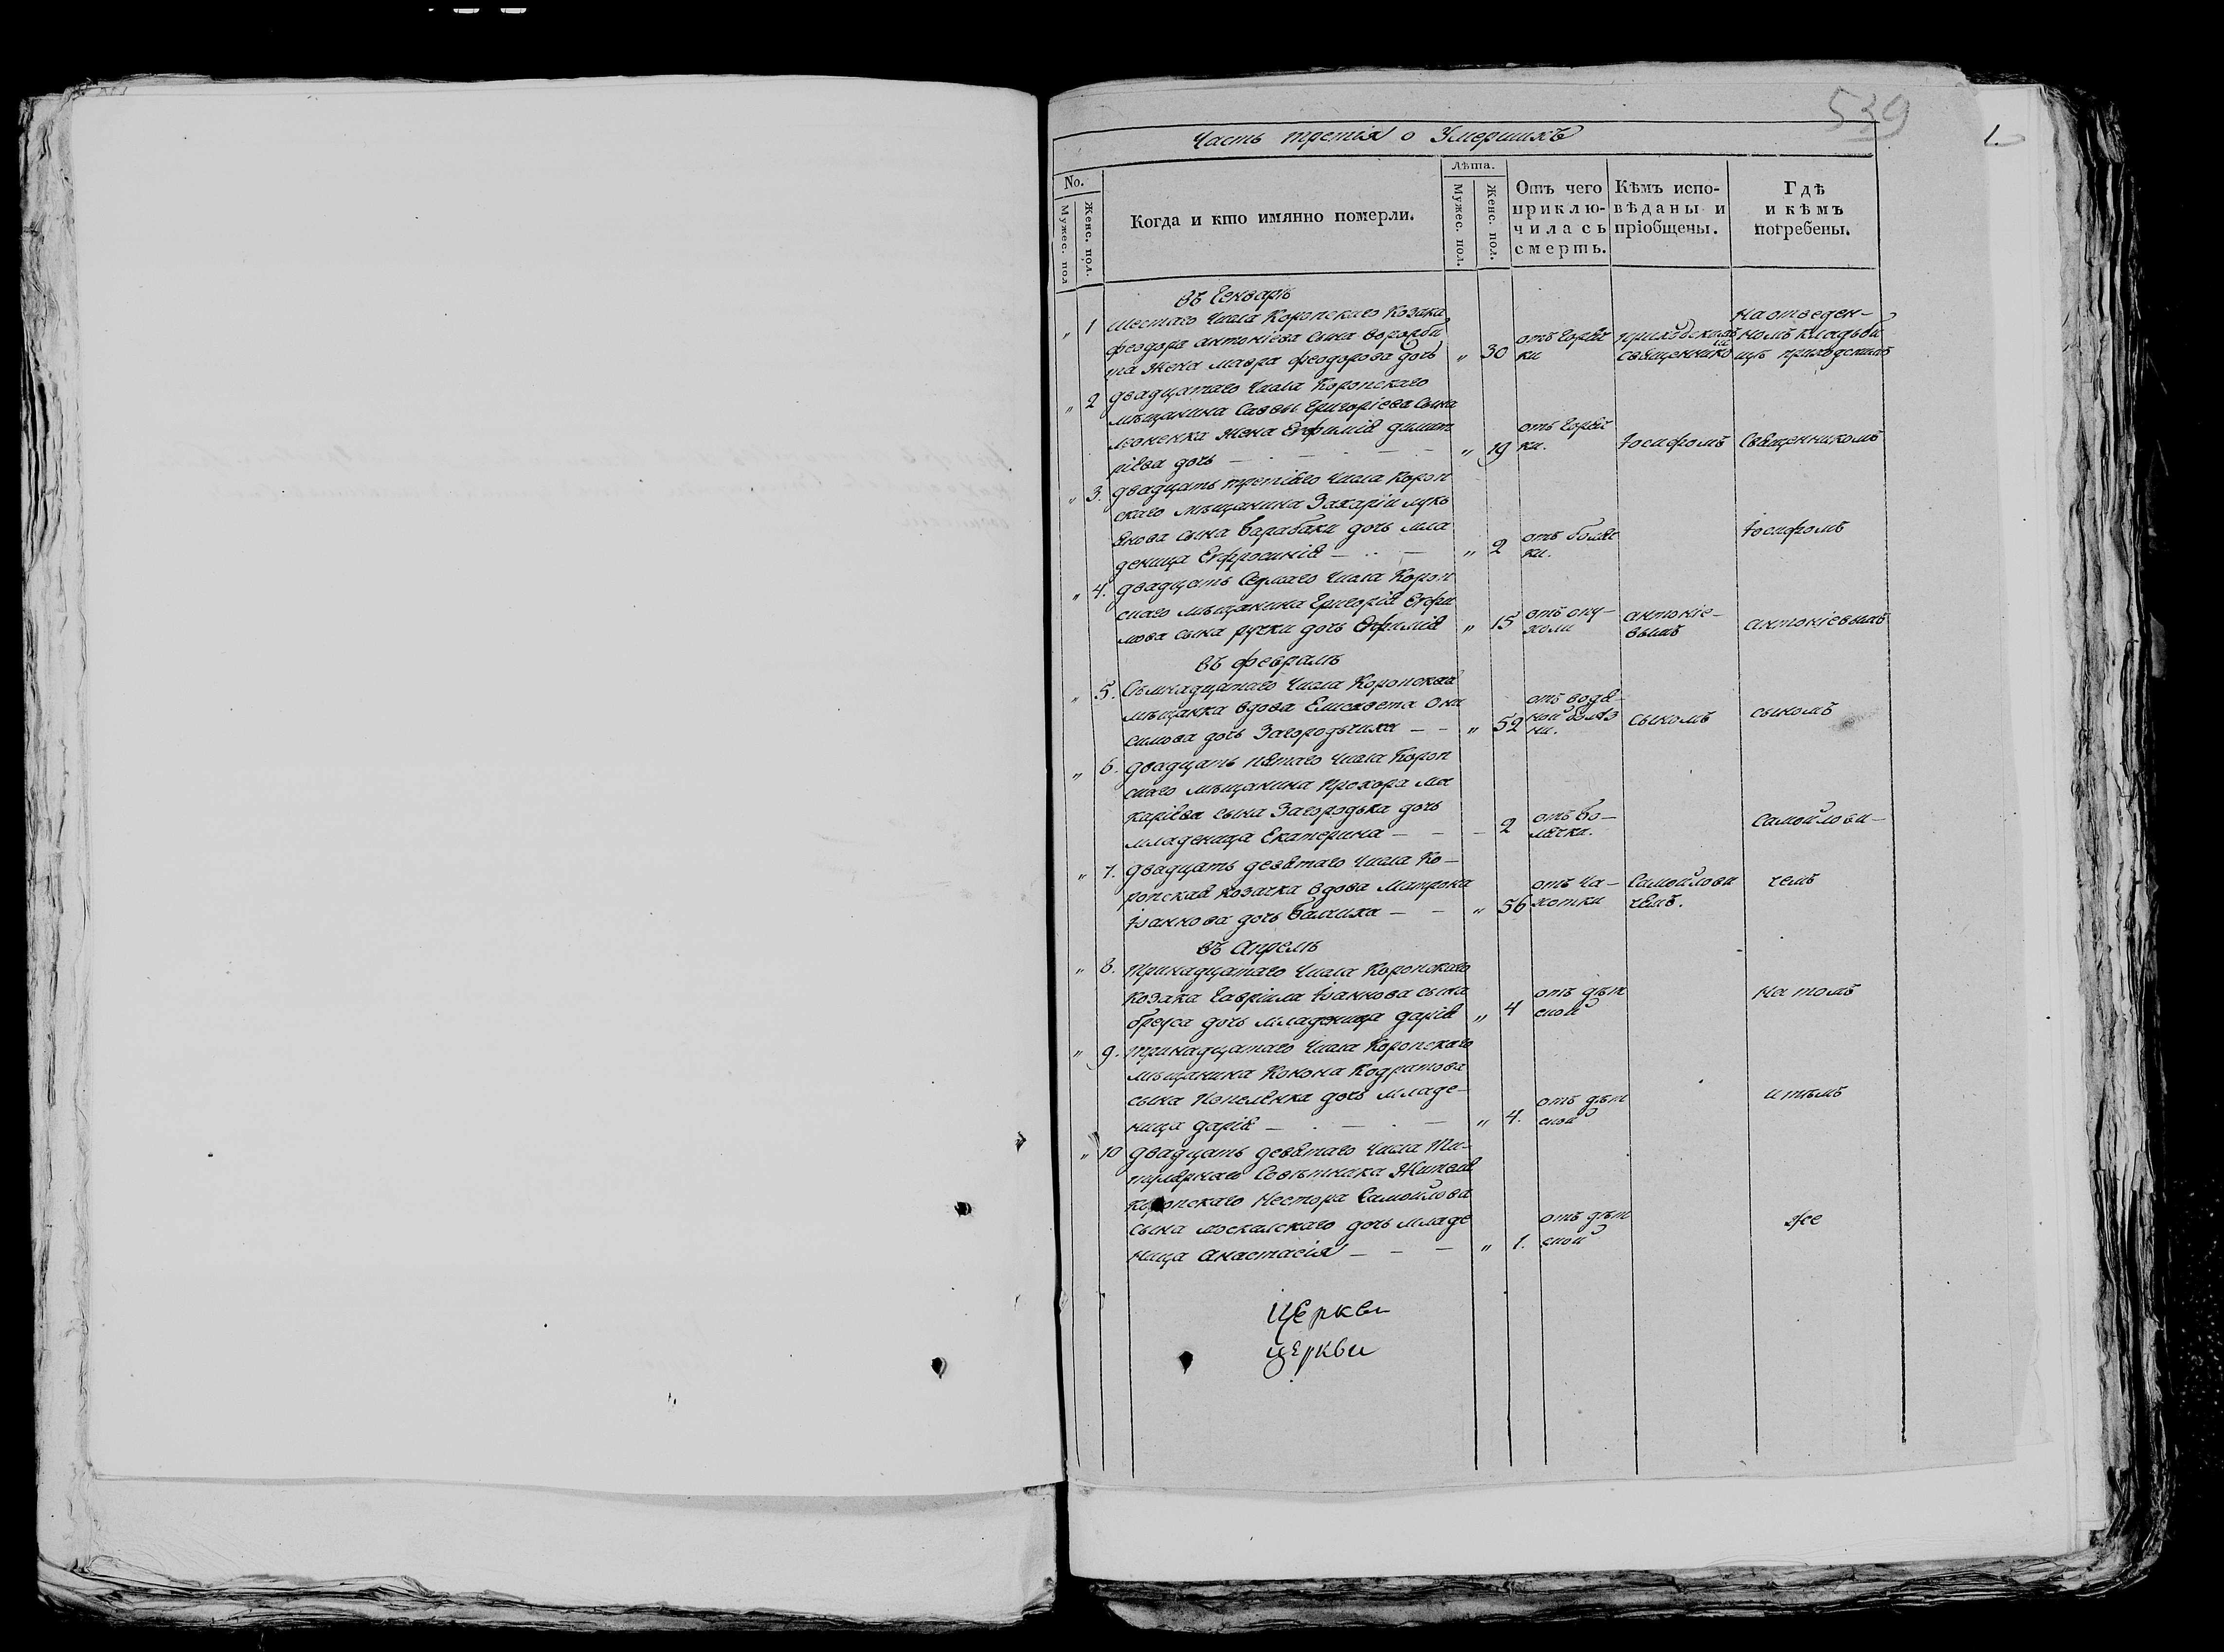 539
1.
Часть третія о Умершихъ
No.
Мужес. пол
Женс. пол.
Когда и кто имянно померли.
Лѣта.
Мужес. пол.
Женс. пол.
Отъ чего приклю-чилась смерть.
Кѣмъ испо-вѣданы и пріобщены.
Гдѣ и кѣмъ погребены.
въ Генварѣ
" 1 Шестаго числа Коропскаго Козака
феодора антоніева сына
жена мавра феодорова дочь " 30 отъ горяч ки
приходскимъ священнико
На отведен-номъ кладби щѣ приходскимъ
" 2 двадцатаго числа Коропскаго
мѣщанина Саввы Григоріева сына
леоненка жена Евфимія димит
ріева дочь — " 19 отъ горяч ки. Іосифомъ Священникомъ
" 3. двадцать третіяго числа Короп
скаго мѣщанина Захаріи лукь
янова сына Барабаки дочь мла
деница Евфросинія — " 2 отъ боляч ки. Іосифомъ
" 4. двадцать седмаго числа Короп
скаго мѣщанина Григорія Евфи
мова сына ручки дочь Евфимія " 15 отъ опу холи антоніе-вымъ антоніевымъ
въ февралѣ
" 5. Семнадцатаго числа Коропская
мѣщанка вдова Елисавета Они
симова дочь Загородчиха — — " 52 отъ водя-ной боляз ни. сыномъ сыномъ
" 6. двадцать пятаго числа Короп
скаго мѣщанина Прохора ма
каріева сына Загородька дочь
младеница Екатерина — — — 2 отъ бо-лячки. Самойлови-
" 7. двадцать девятаго числа Ко-
ропская козачка вдова Матрона
Іоаннова дочь Балиха — — " 56 отъ ча-хотки Самойлови чемъ. чемъ
въ Апрелѣ
" 8. тринадцатаго числа Коропскаго
козака Гавріила Іоаннова сына
бреуса дочь младеница дарія " 4 отъ дѣт ской На томъ
" 9. тринадцатаго числа Коропскаго
мѣщанина Конона Кодратова
сына Попелянка дочь младе-
ница дарія — " 4. отъ дѣт ской и тѣмъ
" 10 двадцать девятаго числа Ти-
тулярнаго Совѣтника Жителя
Коропскаго Нестора Самойлова
сына москалскаго дочь младе
ница Анастасія — — — " 1. отъ дѣт ской же
Церкви
церкви